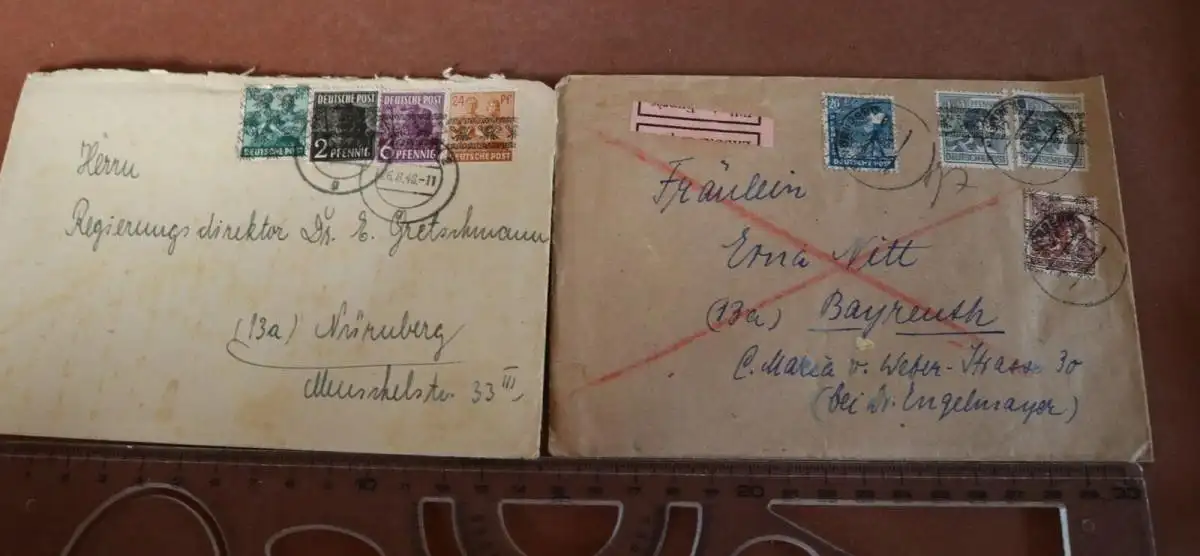 DEUTSCHE POST
2 PFENNIG
DEUTSCHE POST
6 PFENNIG
24 Pf
DEUTSCHE POST
6.8.48.-11
Herrn
Regierungsdirektor Dr. E. Gretschmann
(13a) Nürnberg
33 III
20
DEUTSCHE POST
Fräulein
Erna Nitt
(13a) Bayreuth
C. Maria v. Weber-Strasse 30
(bei Dr. Engelmayer)
10
20
30